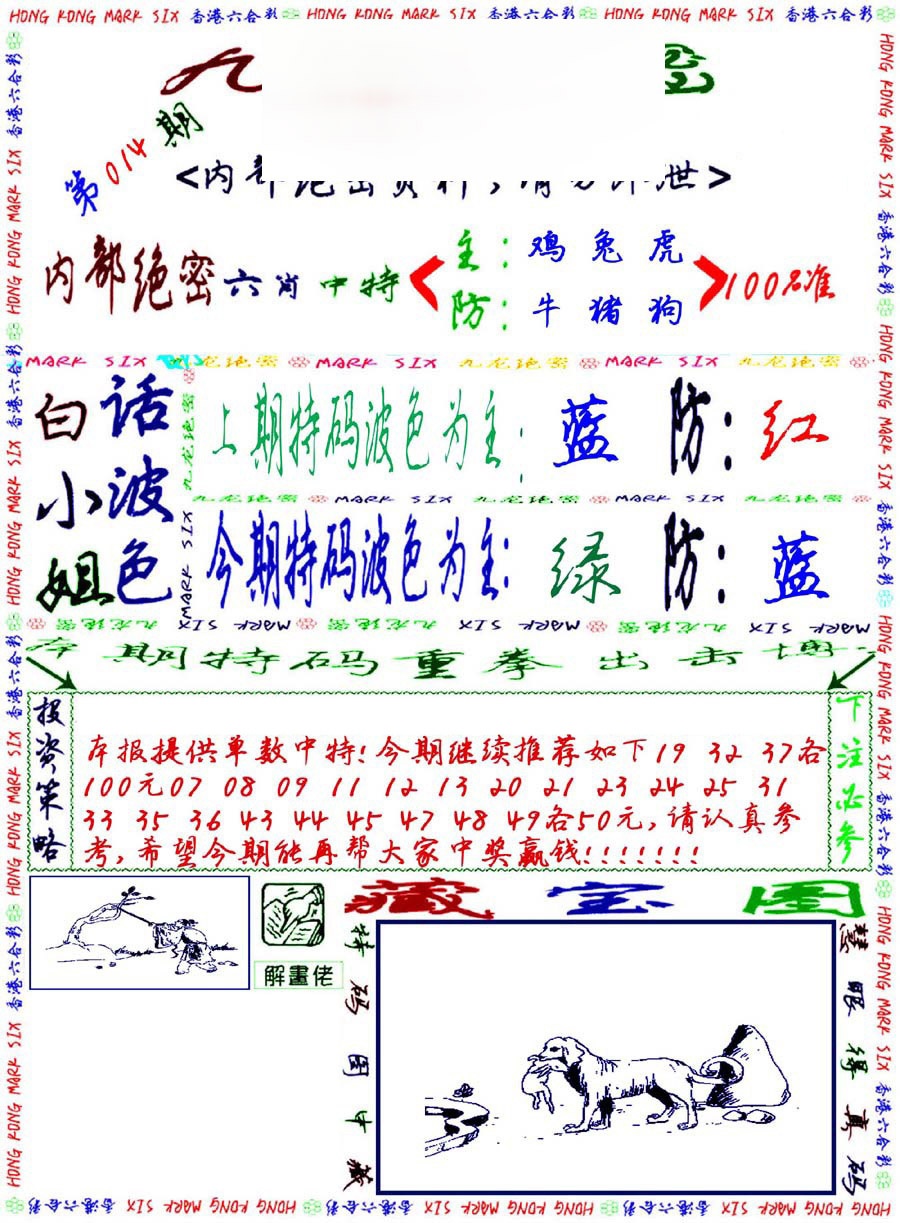 HONG KONG MARK SIX 香港六合彩 HONG KONG MARK SIX 香港六合彩 HONG KONG MARK SIX 香港六合彩
九
第014期
<内部绝密资料,请勿外泄>
内部绝密六肖中特
主:鸡兔虎
防:牛猪狗
100%准
MARK SIX 九龙绝密 MARK SIX 九龙绝密 MARK SIX 九龙绝密
白话
小波
姐色
上期特码波色为主:蓝 防:红
九龙绝密 MARK SIX 九龙绝密 MARK SIX 九龙绝密
今期特码波色为主:绿 防:蓝
MARK SIX 九龙绝密 MARK SIX 九龙绝密 MARK SIX 九龙绝密
本期特码重拳出击博
投资策略
本报提供单数中特!今期继续推荐如下19 32 37各
100元07 08 09 11 12 13 20 21 23 24 25 31
33 35 36 43 44 45 47 48 49各50元,请认真参
考,希望今期能再帮大家中奖赢钱!!!!!!!
下注必参
藏宝图
解畫佬
特码图中藏
慧眼得真码
HONG KONG MARK SIX 香港六合彩 HONG KONG MARK SIX 香港六合彩 HONG KONG MARK SIX 香港六合彩